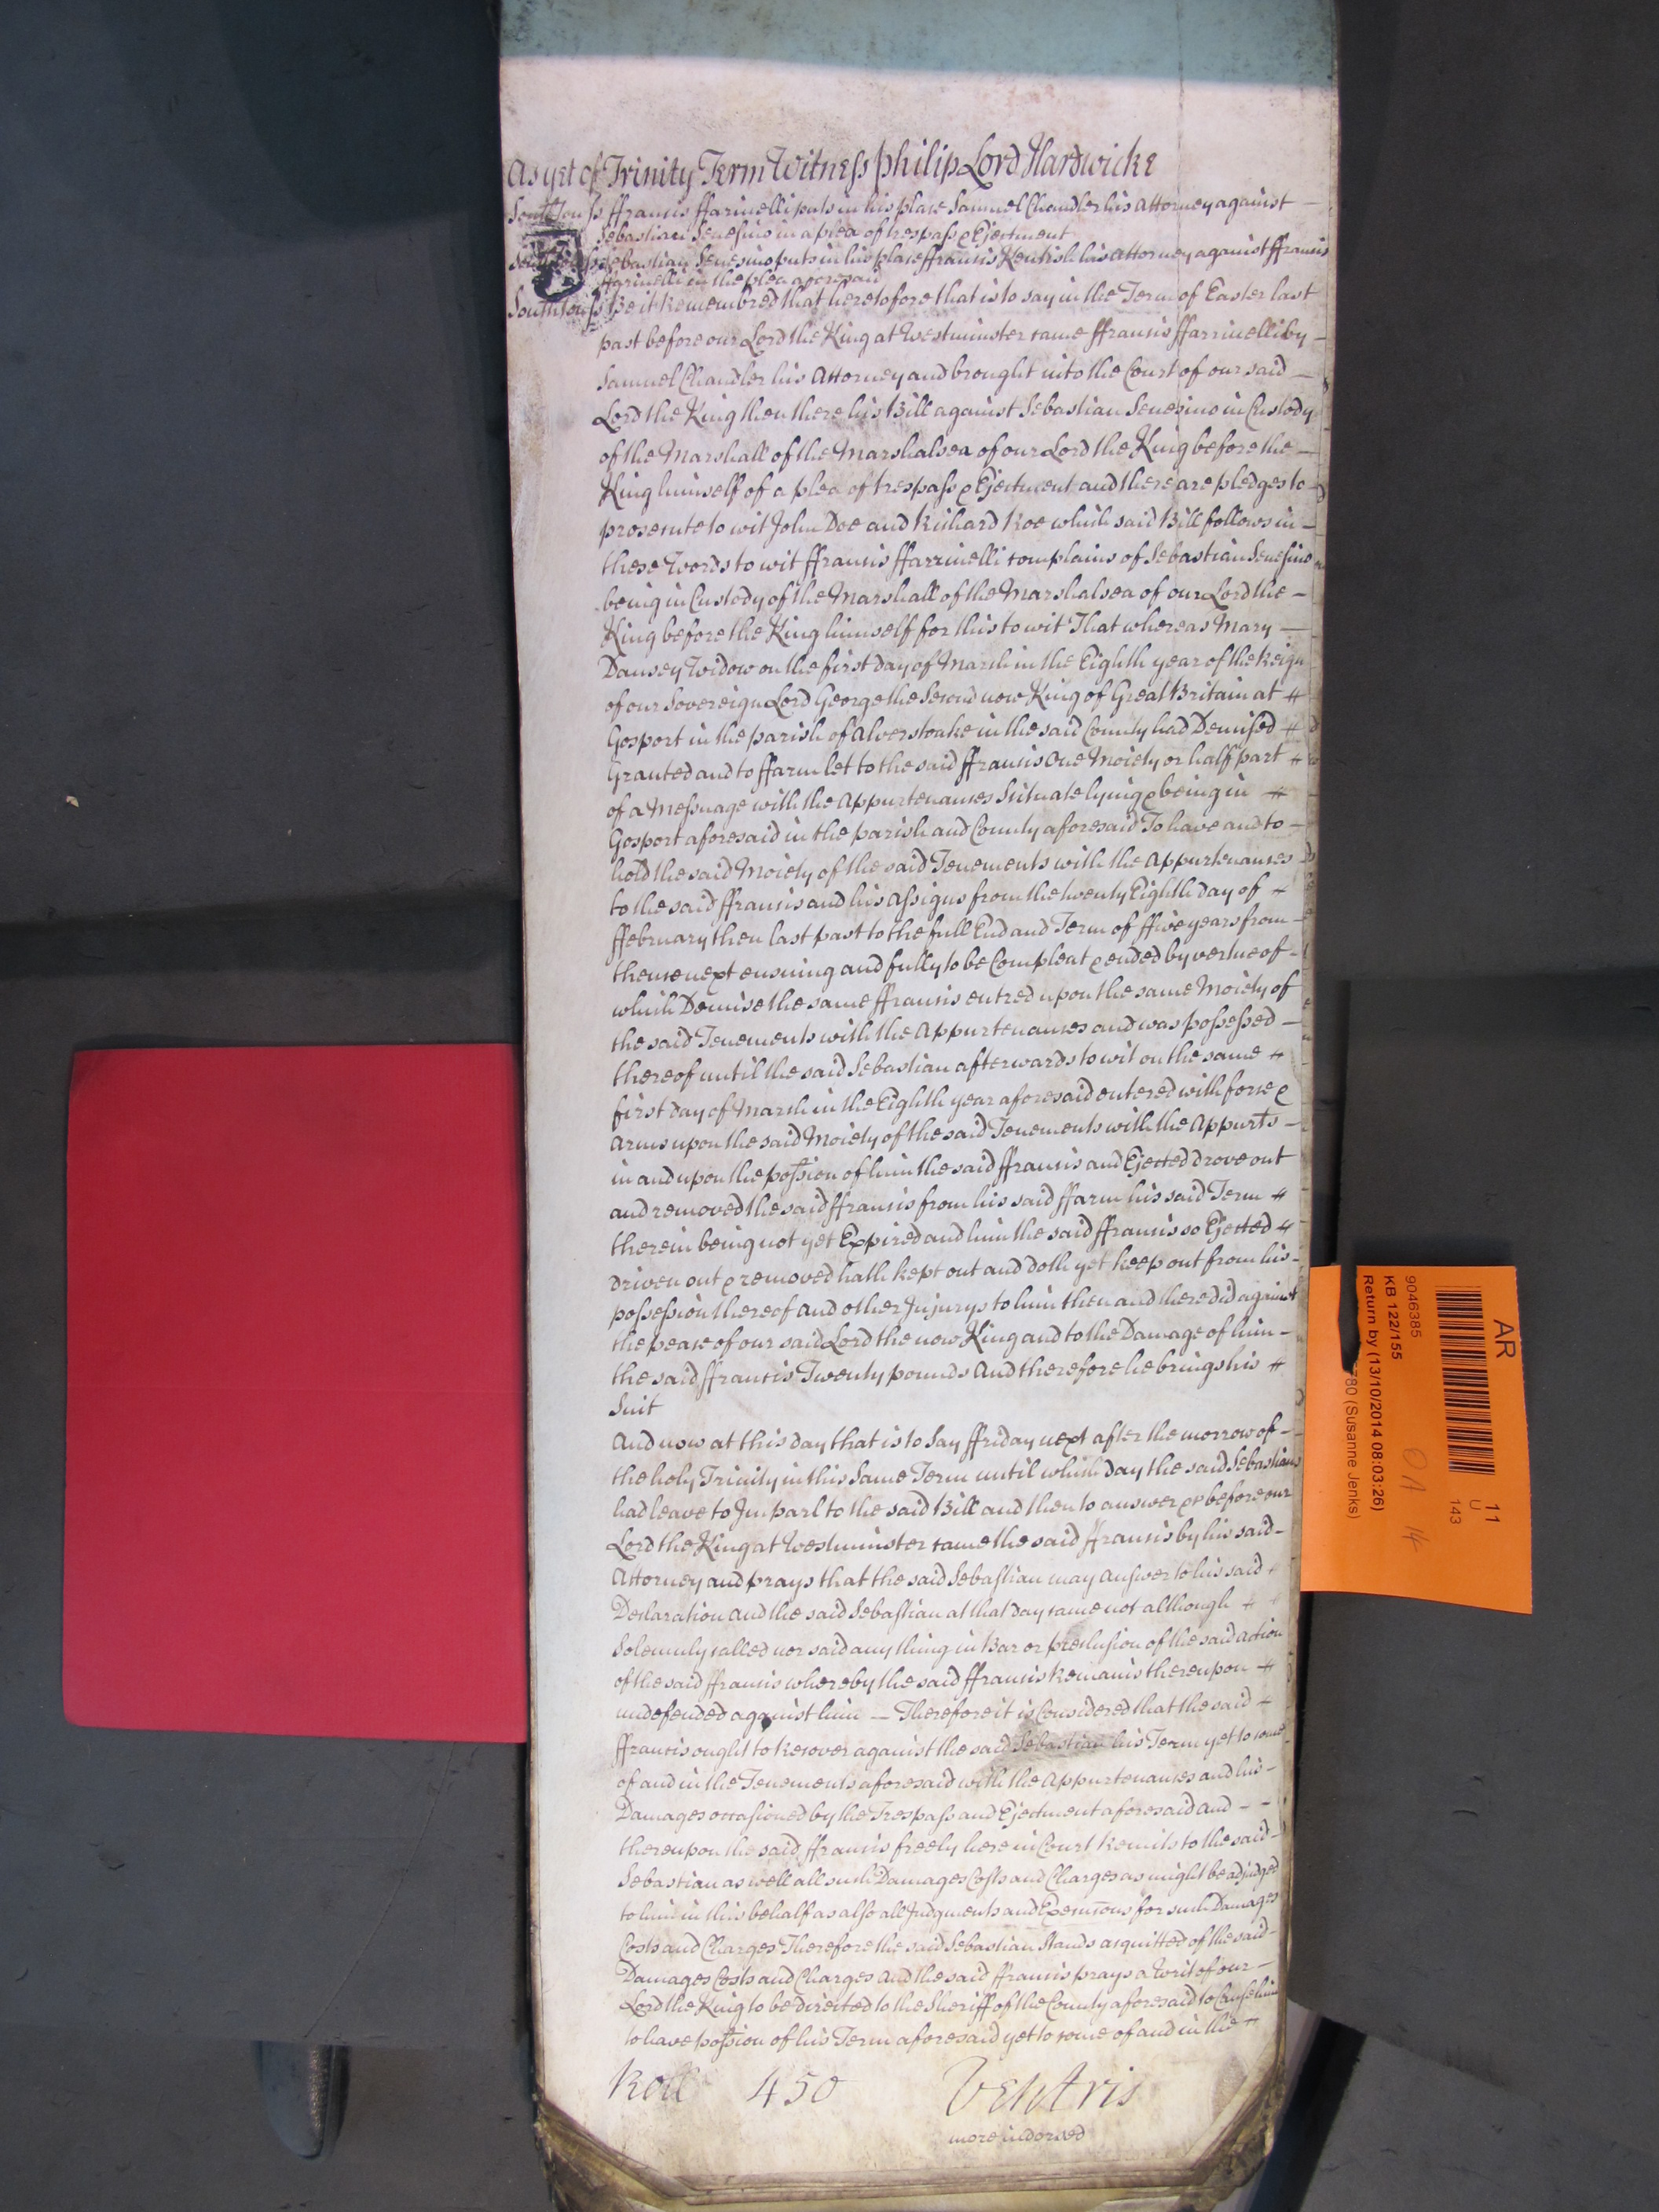 As yet of Trinity Term Witness Philip Lord Hardwicke
South'ton ss ffrancis ffarinelli puts in his place Samuel Chandler his Attorney against
Sebastian Senesino in a plea of trespass & Ejectment
South'ton ss Sebastian Senesino puts in his place ffrancis Kentish his attorney against ffrancis
ffarinelli in the plea aforesaid
South'ton ss Be it Remembred that heretofore that is to say in the Term of Easter last
past before our Lord the King at Westminster came ffrancis ffarrinelli by
Samuel Chandler his Attorney and brought into the Court of our said
Lord the King then there his Bill against Sebastian Senesino in Custody
of the Marshall of the Marshalsea of our Lord the King before the
King himself of a plea of trespass & Ejectment and there are pledges to
prosecute to wit John Doe and Richard Roe which said Bill follows in
these Words to wit ffrancis ffarrinelli complains of Sebastian Senesino
being in Custody of the Marshall of the Marshalsea of our Lord the
King before the King himself for this to wit That whereas Mary
Dansey Widow on the first day of March in the Eighth year of the Reign
of our Sovereign Lord George the Second now King of Great Britain at
Gosport in the parish of Alverstoake in the said County had Demised
Granted and to ffarm let to the said ffrancis One Moiety or half part
of a Messuage with the Appurtenances Scituate lying & being in
Gosport aforesaid in the parish and County aforesaid To have and to
hold the said Moiety of the said Tenements with the Appurtenances
to the said ffrancis and his Assigns from the twenty Eighth day of
ffebruary then last past to the full End and Term of ffive years from
thence next ensuing and fully to be Compleat & ended by vertue of
which Demise the same ffrancis entred upon the same Moiety of
the said Tenements with the Appurtenances and was possessed
thereof until the said Sebastian afterwards to wit on the same
first day of March in the Eighth year aforesaid entered with force &
Arms upon the said Moiety of the said Tenements with the Appurts
in and upon the possion of him the said ffrancis and Ejected drove out
and removed the said ffrancis from his said ffarm his said Term
therein being not yet Expired and him the said ffrancis so Ejected
driven out & removed hath kept out and doth yet keep out from his
possession thereof and other Injurys to him then and there did against
the peace of our said Lord the now King and to the Damage of him
the said ffrancis Twenty pounds And therefore he brings his
Suit
And now at this day that is to Say ffriday next after the morrow of
the holy Trinity in this Same Term until which day the said Sebastian
had leave to Imparl to the said Bill and then to answer &c before our
Lord the King at Westminster came the said ffrancis by his said
Attorney and prays that the said Sebastian may Answer to his said
Declaration and the said Sebastian at that day came not although
Solemnly called nor said any thing in Bar or preclusion of the said action
of the said ffrancis whereby the said ffrancis Remains thereupon
undefended against him — Therefore it is Considered that the said
ffrancis ought to Recover against the said Sebastian his Term yet to come
of and in the Tenements aforesaid with the Appurtenances and his
Damages occasioned by the Trespass and Ejectment aforesaid and
thereupon the said ffrancis freely here in Court Remits to the said
Sebastian as well all such Damages Costs and Charges as might be adjudged
to him in this behalf as also all Judgments and Execucons for such Damages
Costs and Charges Therefore the said Sebastian Stands acquitted of the said
Damages Costs and Charges And the said ffrancis prays a Writ of our
Lord the King to be directed to the Sheriff of the County aforesaid to Cause him
to have possion of his Term aforesaid yet to come of and in the
Roll 450 Ventris
more indorsed
AR
11
U
143
9046385
KB 122/155
Return by (13/10/2014 08:03:26)
780 (Susanne Jenks)